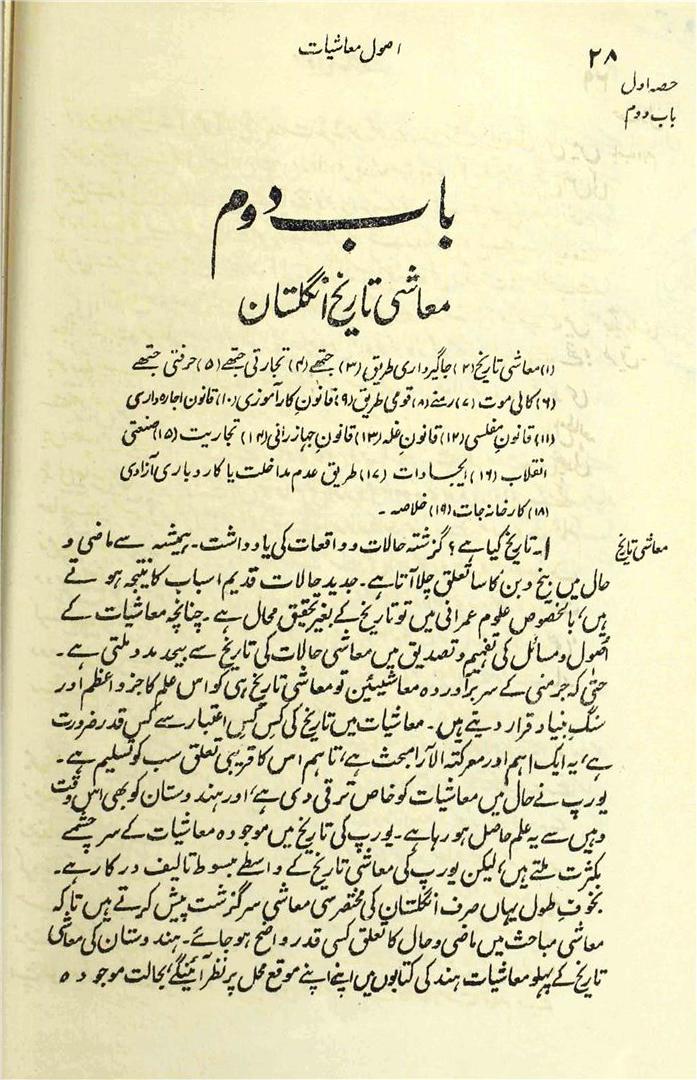 ۲۸
اصول معاشیات
حصہ اول
باب دوم
باب دوم
معاشی تاریخ انگلستان
(۱) معاشی تاریخ (۲) جاگیرداری طریق (۳) جتھے (۴) تجارتی جتھے (۵) حرفتی جتھے
(۶) کالی موت (۷) رمنے (۸) قومی طریق (۹) قانونِ کارآموزی (۱۰) قانون اجارہ داری
(۱۱) قانونِ مفلسی (۱۲) قانونِ غلہ (۱۳) قانونِ جہازرانی (۱۴) تجاریت (۱۵) صنعتی
انقلاب (۱۶) ایجادات (۱۷) طریق عدم مداخلت یا کاروباری آزادی
(۱۸) کارخانہ جات (۱۹) خلاصہ ۔
معاشی تاریخ
۱۔ تاریخ کیا ہے؟ گزشتہ حالات و واقعات کی یادداشت۔ ہمیشہ سے ماضی و
حال میں بیخ و بن کا سا تعلق چلا آتا ہے۔ جدید حالات قدیم اسباب کا نتیجہ ہوتے
ہیں، بالخصوص علوم عمرانی میں تو تاریخ کے بغیر تحقیق محال ہے۔ چنانچہ معاشیات کے
اُصول و مسائل کی تفہیم و تصدیق میں معاشی حالات کی تاریخ سے بیحد مدد ملتی ہے۔
حتیٰ کہ جرمنی کے سربرآوردہ معاشیئین تو معاشی تاریخ ہی کو اس علم کا جزو اعظم اور
سنگِ بنیاد قرار دیتے ہیں۔ معاشیات میں تاریخ کی کِس کِس اعتبار سے کس قدر ضرورت
ہے، یہ ایک اہم اور معرکتہ الآرا مبحث ہے، تاہم اس کا قریبی تعلق سب کو تسلیم ہے۔
یورپ نے حال میں معاشیات کو خاص ترقی دی ہے، اور ہندوستان کو بھی اس وقت
وہیں سے یہ علم حاصل ہو رہا ہے۔ یورپ کی تاریخ میں موجودہ معاشیات کے سرچشمے
بکثرت ملتے ہیں، لیکن یورپ کی معاشی تاریخ کے واسطے مبسوط تالیف درکار ہے۔
بخوفِ طول یہاں صرف انگلستان کی مختصر سی معاشی سرگزشت پیش کرتے ہیں تاکہ
معاشی مباحث میں ماضی و حال کا تعلق کسی قدر واضح ہو جائے۔ ہندوستان کی معاشی
تاریخ کے پہلو معاشیات ہند کی کتابوں میں اپنے اپنے موقع محل پر نظر آئینگے، بحالت موجودہ